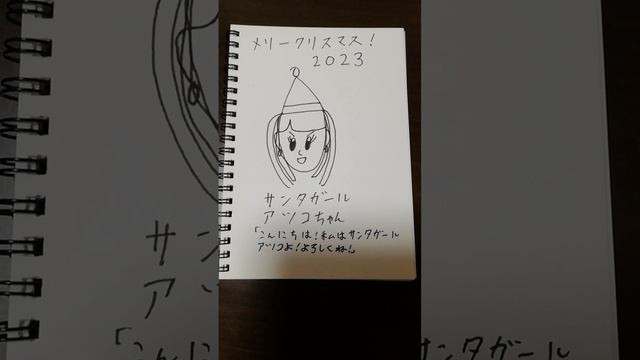 メリークリスマス!
2023
サンタガール
アツコちゃん
「こんにちは!私はサンタガール
アツコよ!よろしくね!」